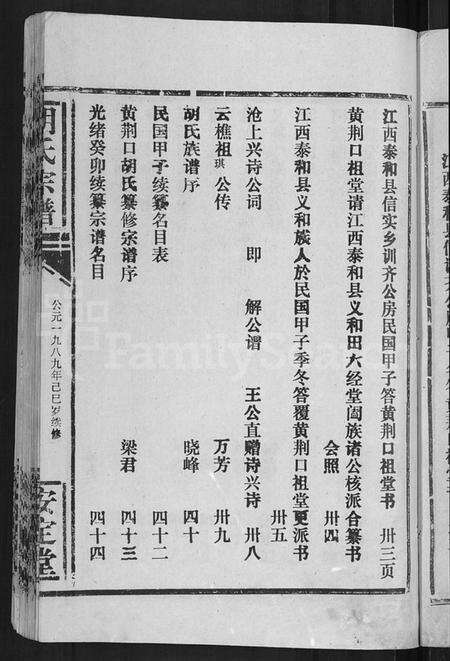 江西泰和县信实乡训齐公房民国甲子答黄荆口祖堂书 卅三页
黄荆口祖堂请江西泰和县义和田六经堂阖族诸公核派合纂书
会照 卅四
江西泰和县义和族人於民国甲子季冬答覆黄荆口祖堂更派书
卅五
沧上兴诗公词 即 解公谱 王公直赠诗兴诗 卅八
云樵祖琪公传 万芳 卅九
胡氏族谱序 晓峰 四十
民国甲子续纂名目表 四十二
黄荆口胡氏纂修宗谱序 梁君 四十三
光绪癸卯续纂宗谱名目 四十四
胡氏宗谱
公元一九八九年己巳岁续修
安定堂
FamilySearch